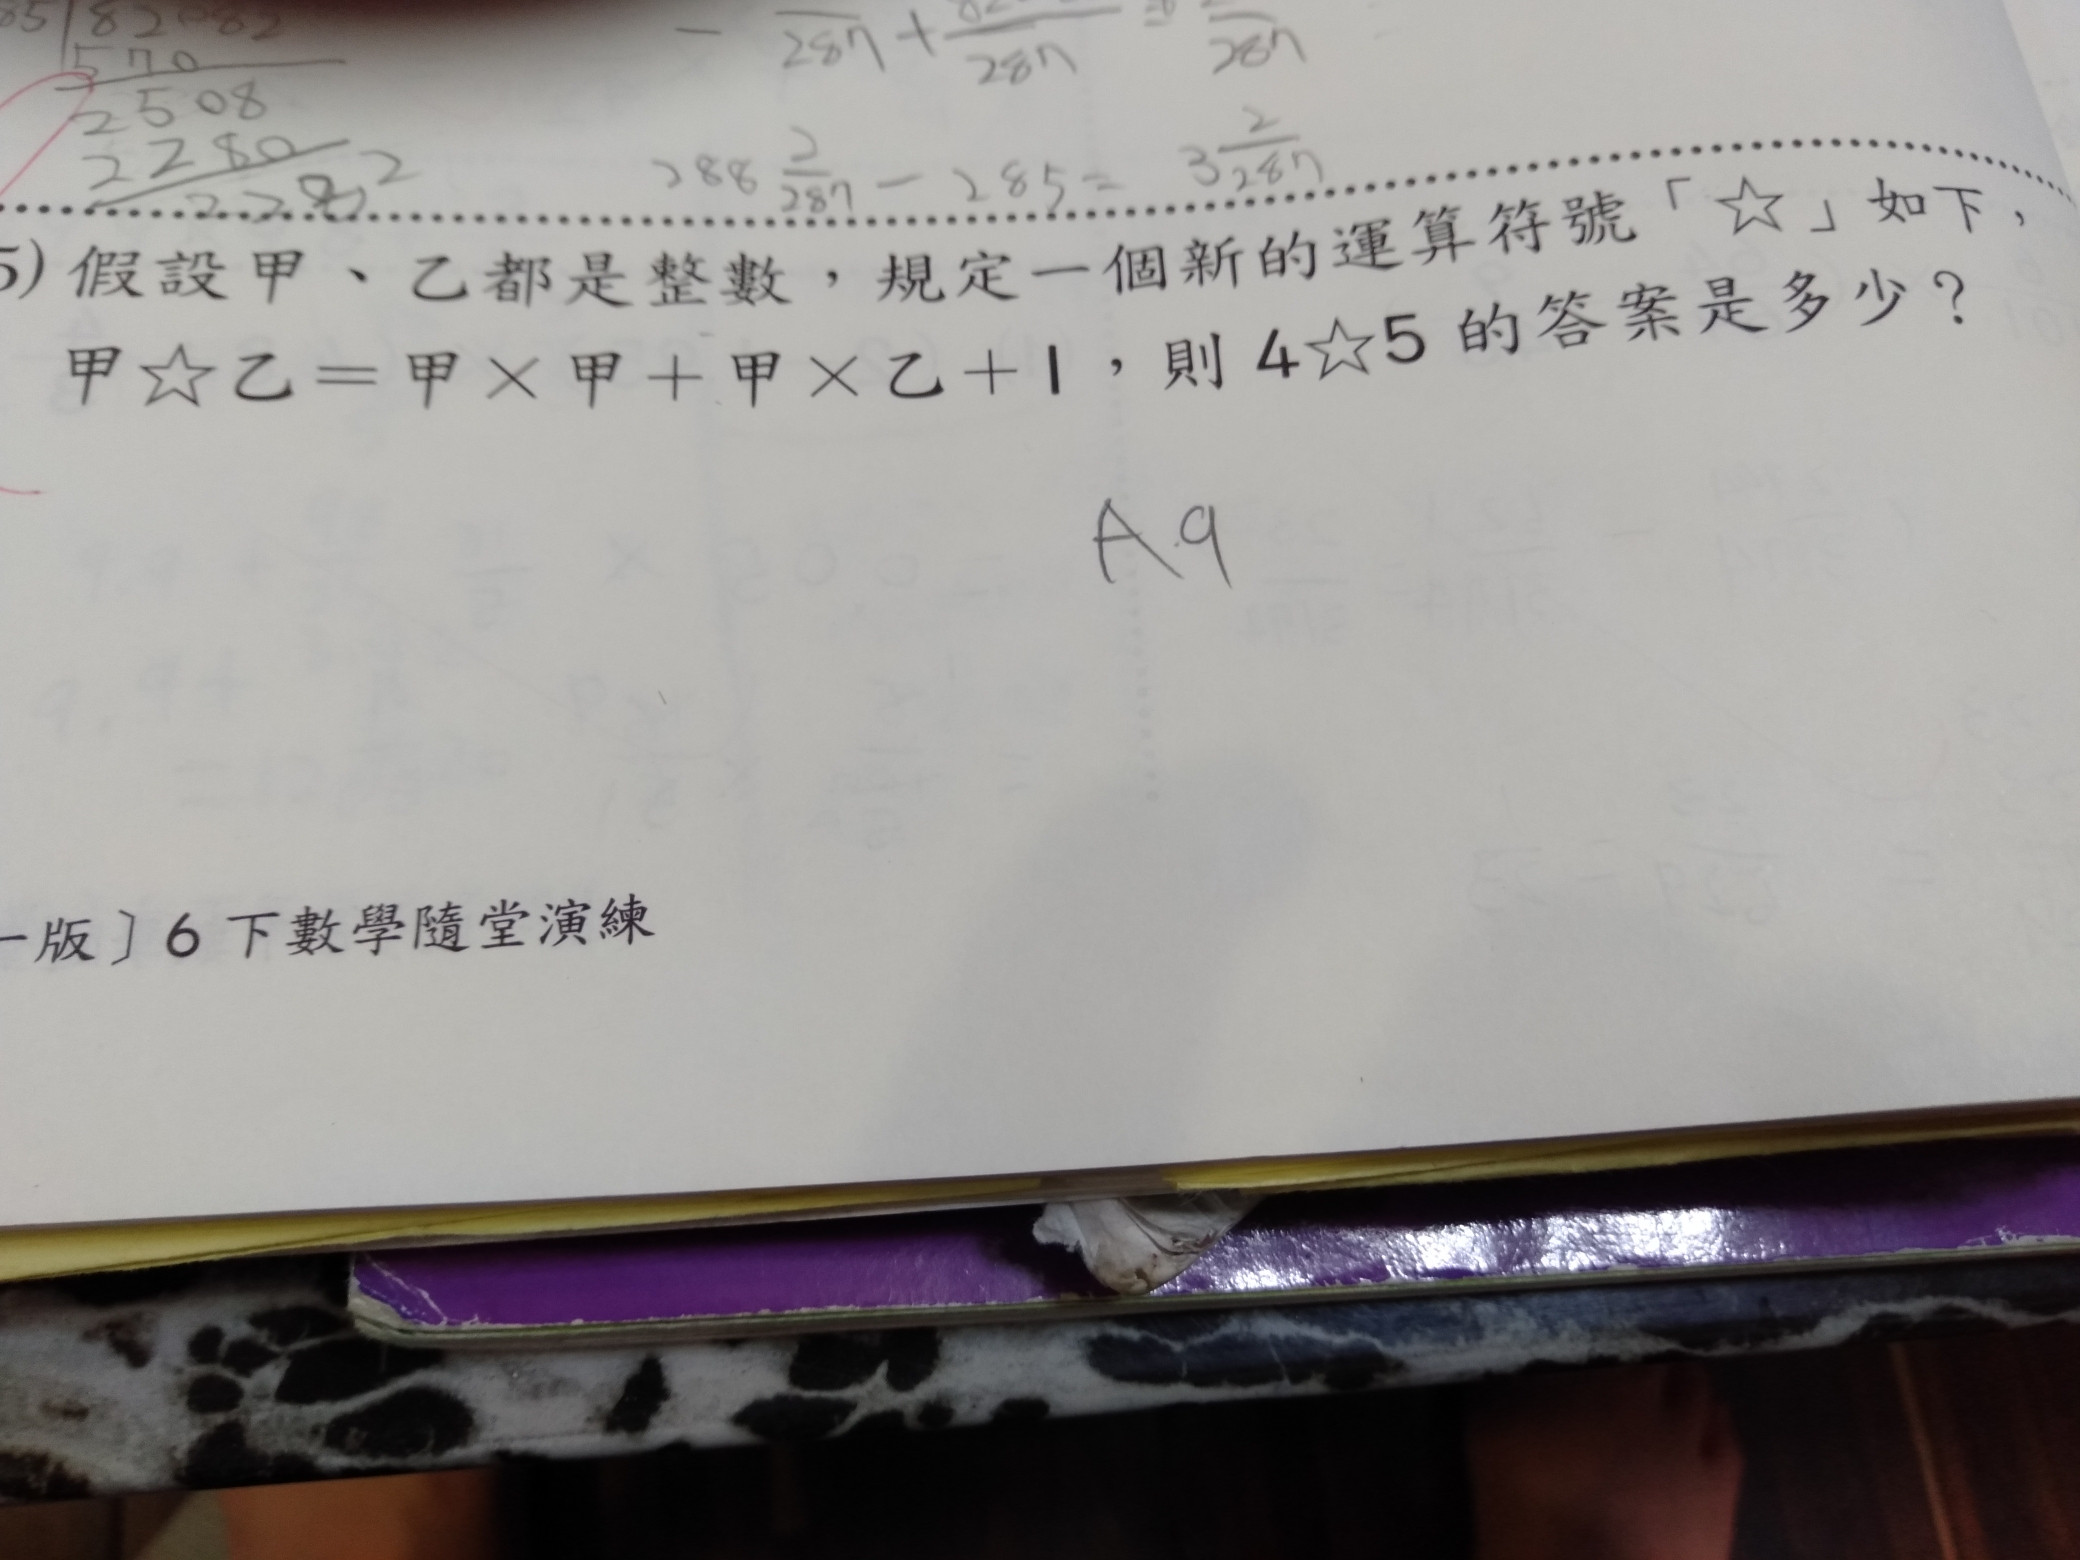 85 82082
570
2508
2280
2282
− 287 + 287 = 287
288 2/287 − 285 = 3 2/287
5) 假設甲、乙都是整數，規定一個新的運算符號「☆」如下，
甲☆乙＝甲×甲＋甲×乙＋1，則 4☆5 的答案是多少？
A.9
一版〕6 下數學隨堂演練